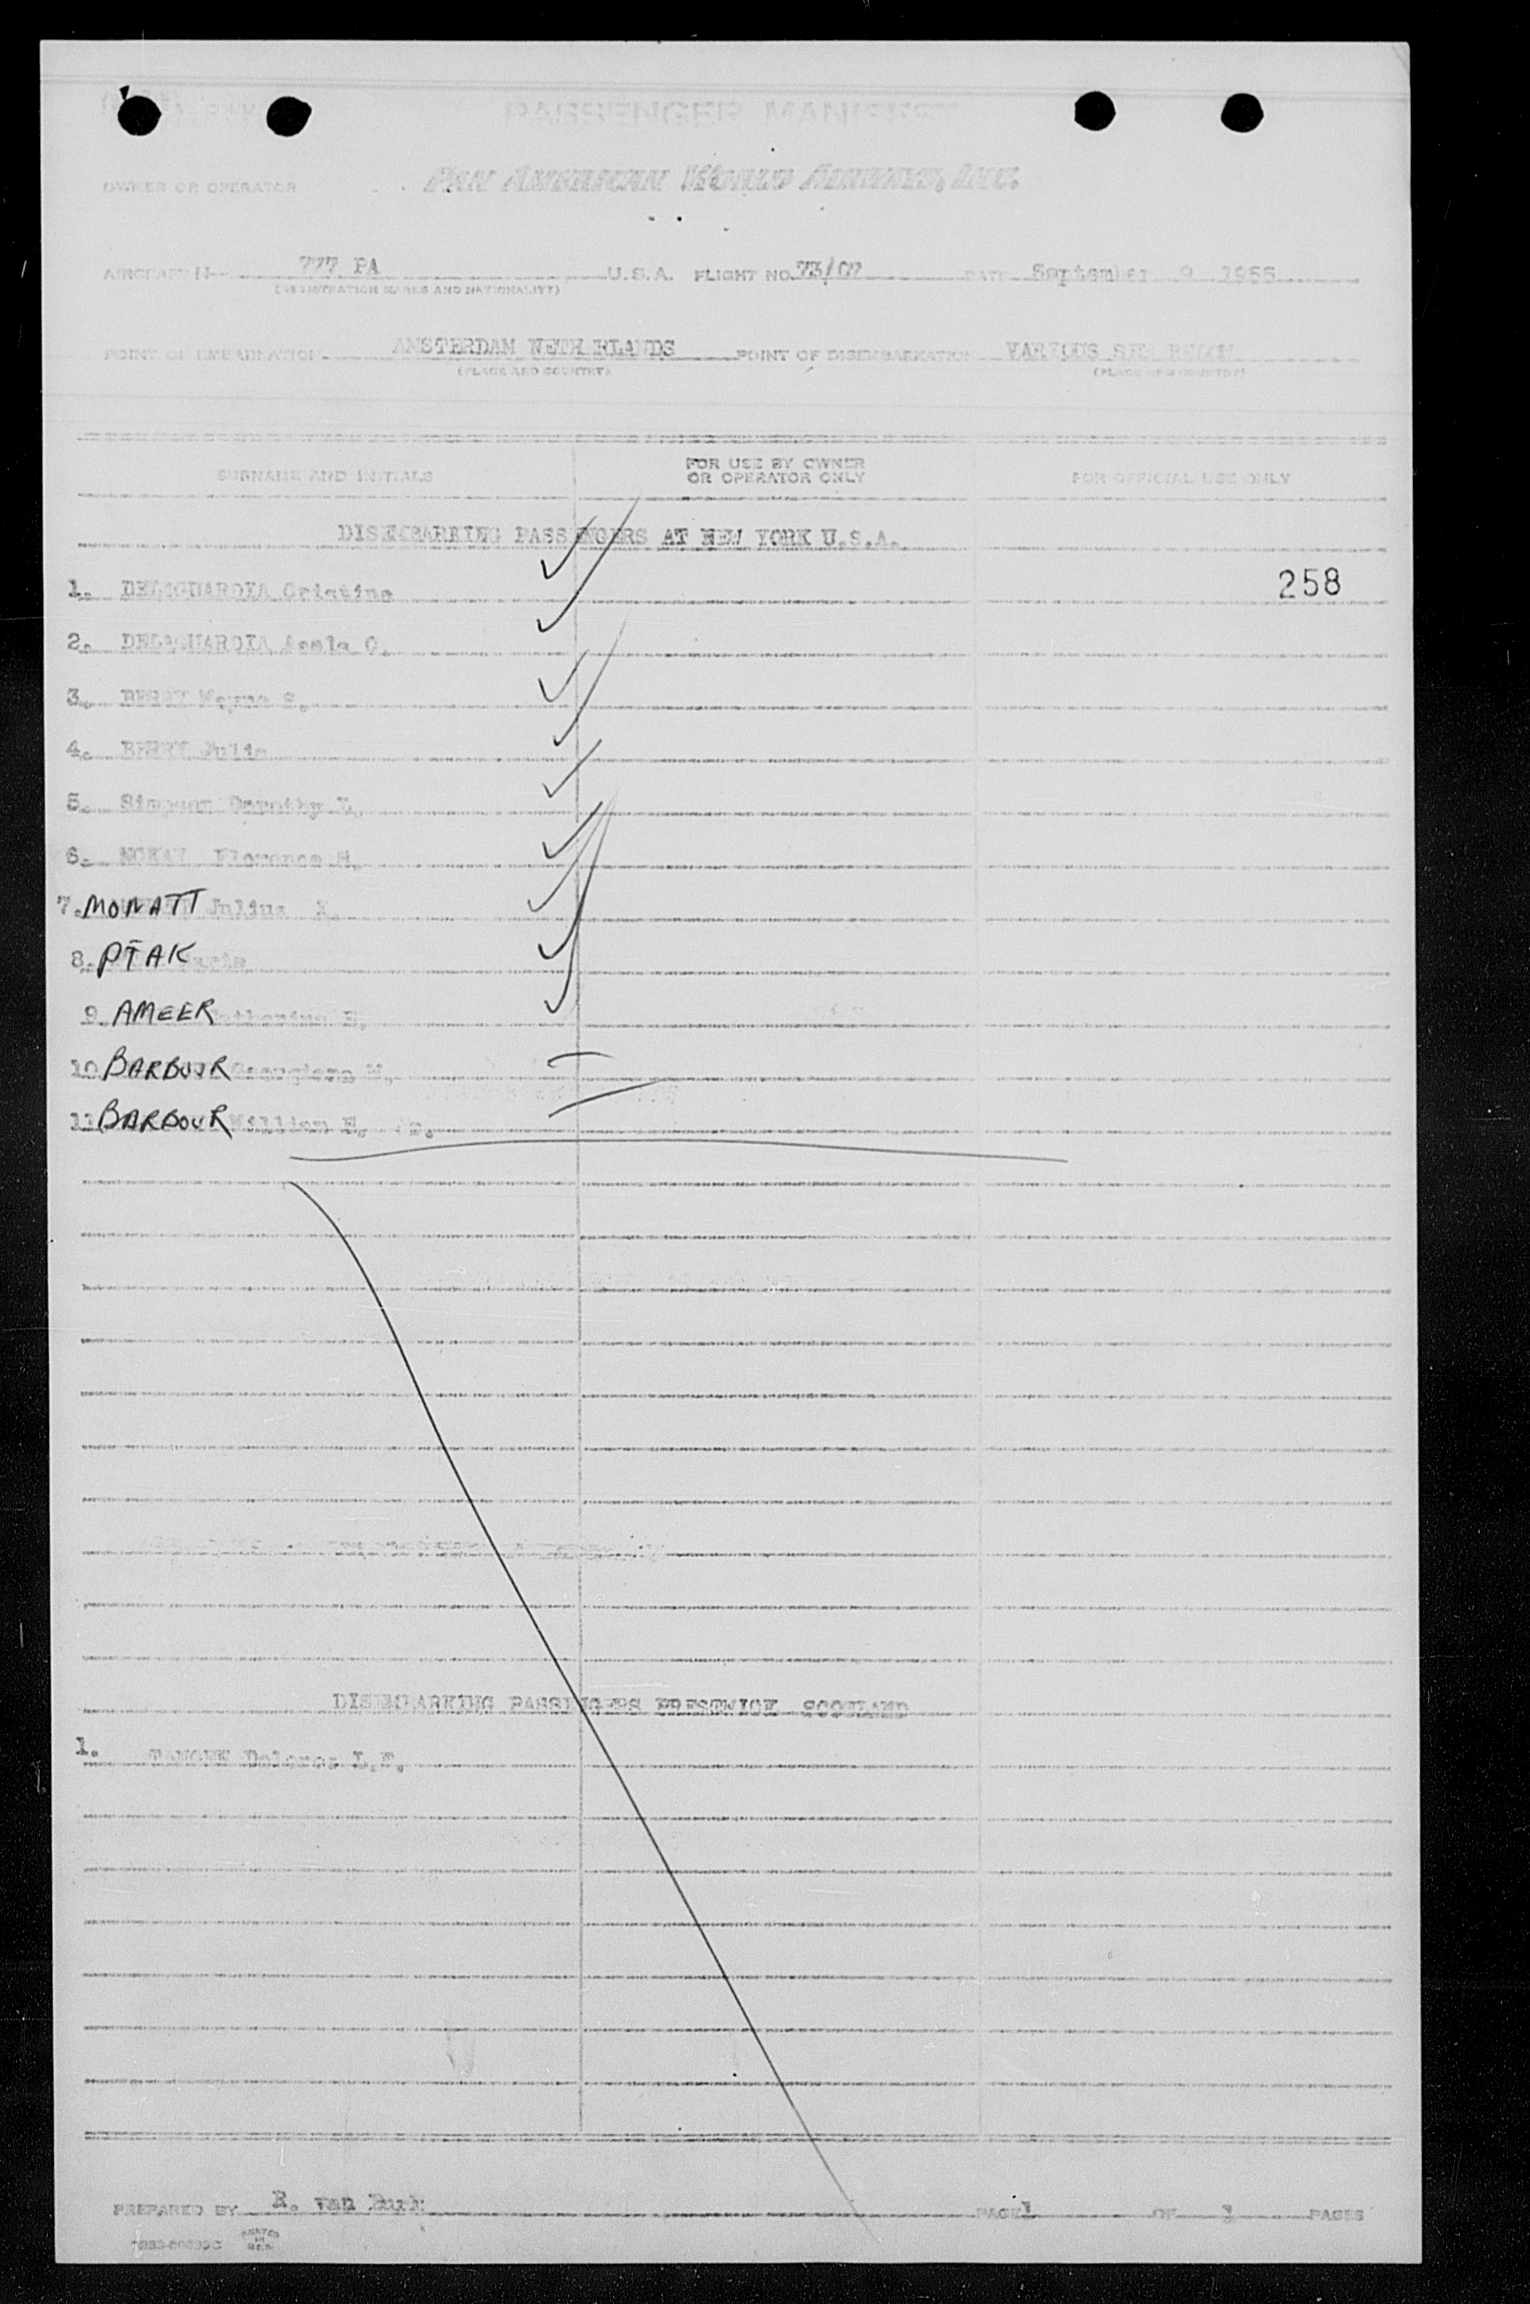 PASSENGER MANIFEST
OWNER OR OPERATOR PAN AMERICAN WORLD AIRWAYS, INC.
AIRCRAFT N- 777 PA U.S.A. FLIGHT NO. 73/07 DATE September 9 1955
(REGISTRATION MARKS AND NATIONALITY)
POINT OF EMBARKATION AMSTERDAM NETH RLANDS POINT OF DISEMBARKATION VARIOUS SEE BELOW
(PLACE AND COUNTRY) (PLACE AND COUNTRY)
SURNAME AND INITIALS FOR USE BY OWNER OR OPERATOR ONLY FOR OFFICIAL USE ONLY
DISEMBARKING PASSENGERS AT NEW YORK U.S.A.
1. DELAGUARDIA Cristina 258
2. DELAGUARDIA O.
3. BERRY Wayne S.
4. BERRY Julia
5. Simpson Dorothy L.
6. MCKAY Florence M.
7. MONATT Julius
8. PTAK Maria
9. AMEER Catherine E.
10 BARBOUR Georgiana
11 BARBOUR William H. Jr.
DISEMBARKING PASSENGERS PRESTWICK SCOTLAND
1. Dolores L.F.
PREPARED BY R. van PAGE 1 OF 1 PAGES